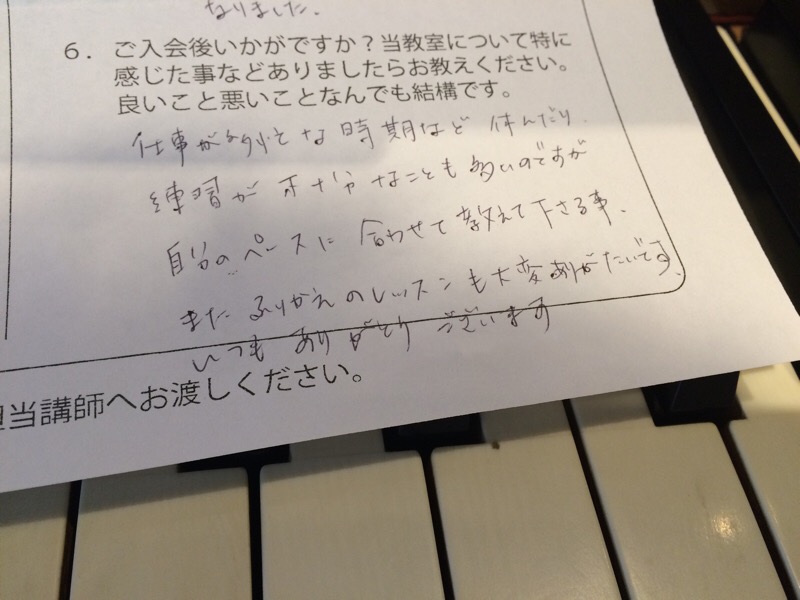 なりました.
6. ご入会後いかがですか?当教室について特に
感じた事などありましたらお教えください。
良いこと悪いことなんでも結構です。
仕事が多忙な時期など 休んだり
練習が 不十分 なことも 多いのですが
自分の ペースに 合わせて 教えて 下さる事、
また ふりかえのレッスンも大変ありがたいです.
いつも ありがとう ございます
担当講師へお渡しください。